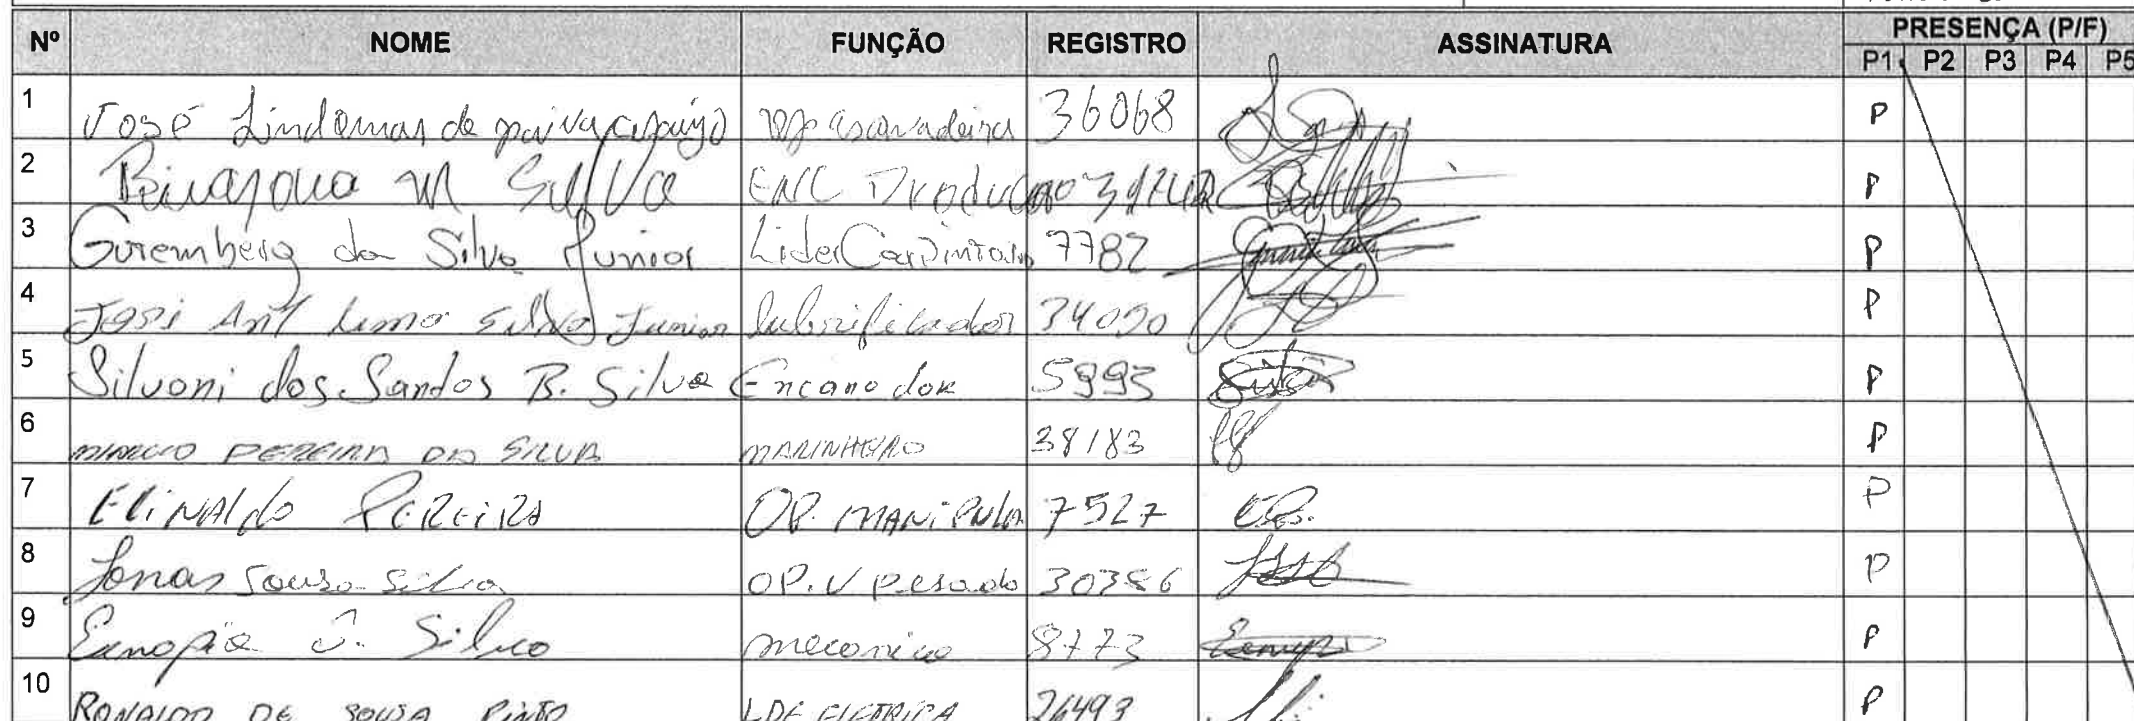 Nº NOME FUNÇÃO REGISTRO ASSINATURA PRESENÇA (P/F)
P1 P2 P3 P4 P5
1 José Lindomar de paiva araújo escavadeira 36068 P
2 M Silva ENC Produção P
3 Guremberg da Silva Junior Lider Carpintaria 7782 P
4 Lima Silva Junior lubrificador 34090 P
5 Silvoni dos Santos B. Silva Encanador 5993 P
6 MARCIO PEREIRA DA SILVA MARINHEIRO 38183 P
7 ELiNAldo PEREiRA OP. MANiPULA 7527 P
8 Jonas Sousa Silva OP. V pesado 30386 P
9 J. Silva mecanico 8773 P
10 RONALDO DE SOUSA PINTO LDE ELETRICA 26493 P